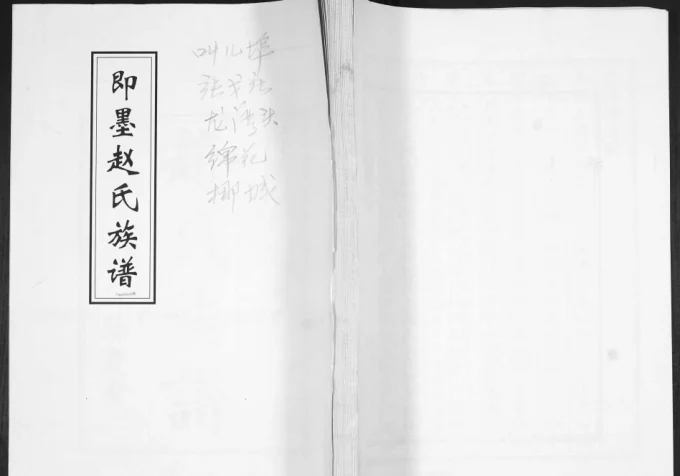 即墨赵氏族谱
叫儿埠
张戈社
龙湾头
绵花
挪城